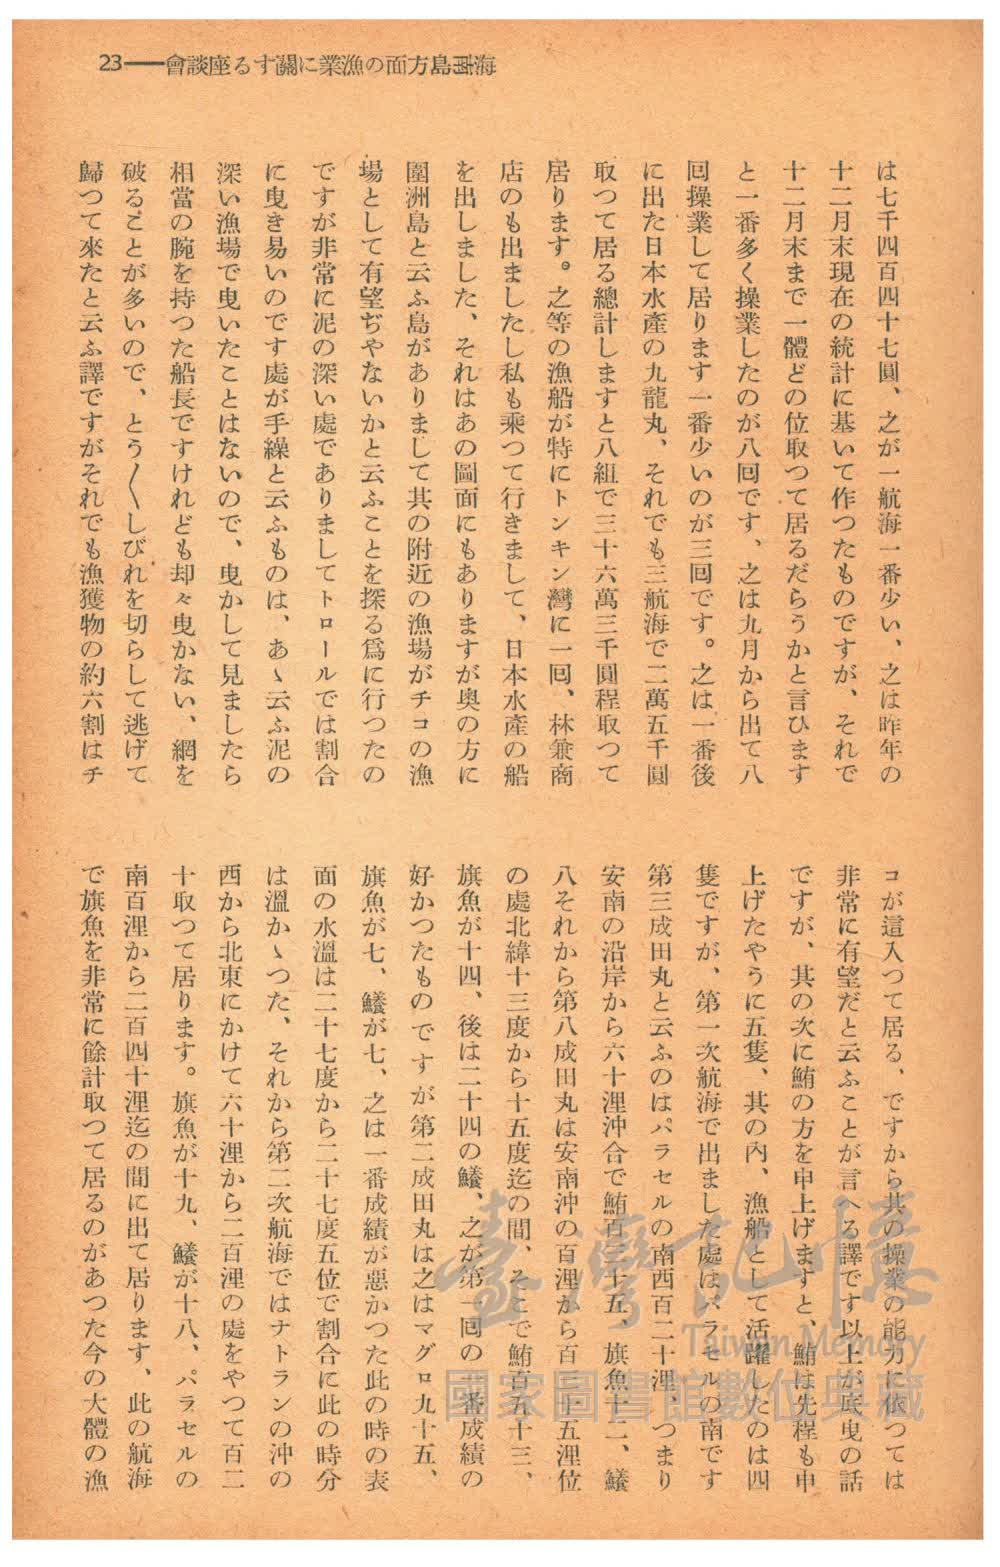 海南島方面の漁業に關する座談會――23
は七千四百四十七圓、之が一航海一番少い、之は昨年の
十二月末現在の統計に基いて作つたものですが、それで
十二月末まで一體どの位取つて居るだらうかと言ひます
と一番多く操業したのが八囘です、之は九月から出て八
囘操業して居ります一番少いのが三囘です。之は一番後
に出た日本水產の九龍丸、それでも三航海で二萬五千圓
取つて居る總計しますと八組で三十六萬三千圓程取つて
居ります。之等の漁船が特にトンキン灣に一囘、林兼商
店のも出ましたし私も乘つて行きまして、日本水產の船
を出しました、それはあの圖面にもありますが奥の方に
圍洲島と云ふ島がありまして其の附近の漁場がチコの漁
場として有望ぢやないかと云ふことを探る爲に行つたの
ですが非常に泥の深い處でありましてトロールでは割合
に曳き易いのです處が手繰と云ふものは、あゝ云ふ泥の
深い漁場で曳いたことはないので、曳かして見ましたら
相當の腕を持つた船長ですけれども却々曳かない、網を
破ることが多いので、とう〱しびれを切らして逃げて
歸つて來たと云ふ譯ですがそれでも漁獲物の約六割はチ
コが這入つて居る、ですから其の操業の能力に依つては
非常に有望だと云ふことが言へる譯です以上が底曳の話
ですが、其の次に鮪の方を申上げますと、鮪は先程も申
上げたやうに五隻、其の內、漁船として活躍したのは四
隻ですが、第一次航海で出ました處はパラセルの南です
第三成田丸と云ふのはパラセルの南西百二十浬 つまり
安南の沿岸から六十浬沖合で鮪百三十五、旗魚十二、鱶
八それから第八成田丸は安南沖の百浬から百二十五浬位
の處北緯十三度から十五度迄の間、そこで鮪百五十三、
旗魚が十四、後は二十四の鱶、之が第一囘の一番成績の
好かつたものですが第二成田丸は之はマグロ九十五、
旗魚が七、鱶が七、之は一番成績が惡かつた此の時の表
面の水溫は二十七度から二十七度五位で割合に此の時分
は溫かゝつた、それから第二次航海ではナトランの沖の
西から北東にかけて六十浬から二百浬の處をやつて百二
十取つて居ります。旗魚が十九、鱶が十八、パラセルの
南百浬から二百四十浬迄の間に出て居ります、此の航海
で旗魚を非常に餘計取つて居るのがあつた今の大體の漁
臺灣記憶
Taiwan Memory
國家圖書館數位典藏